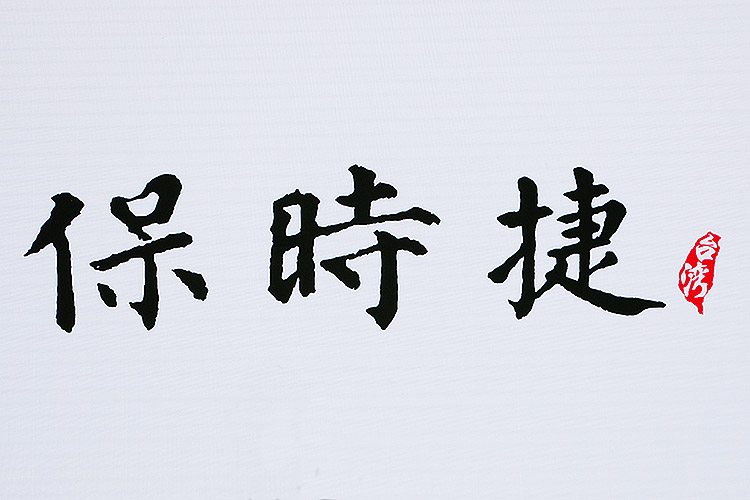 保時捷
台湾